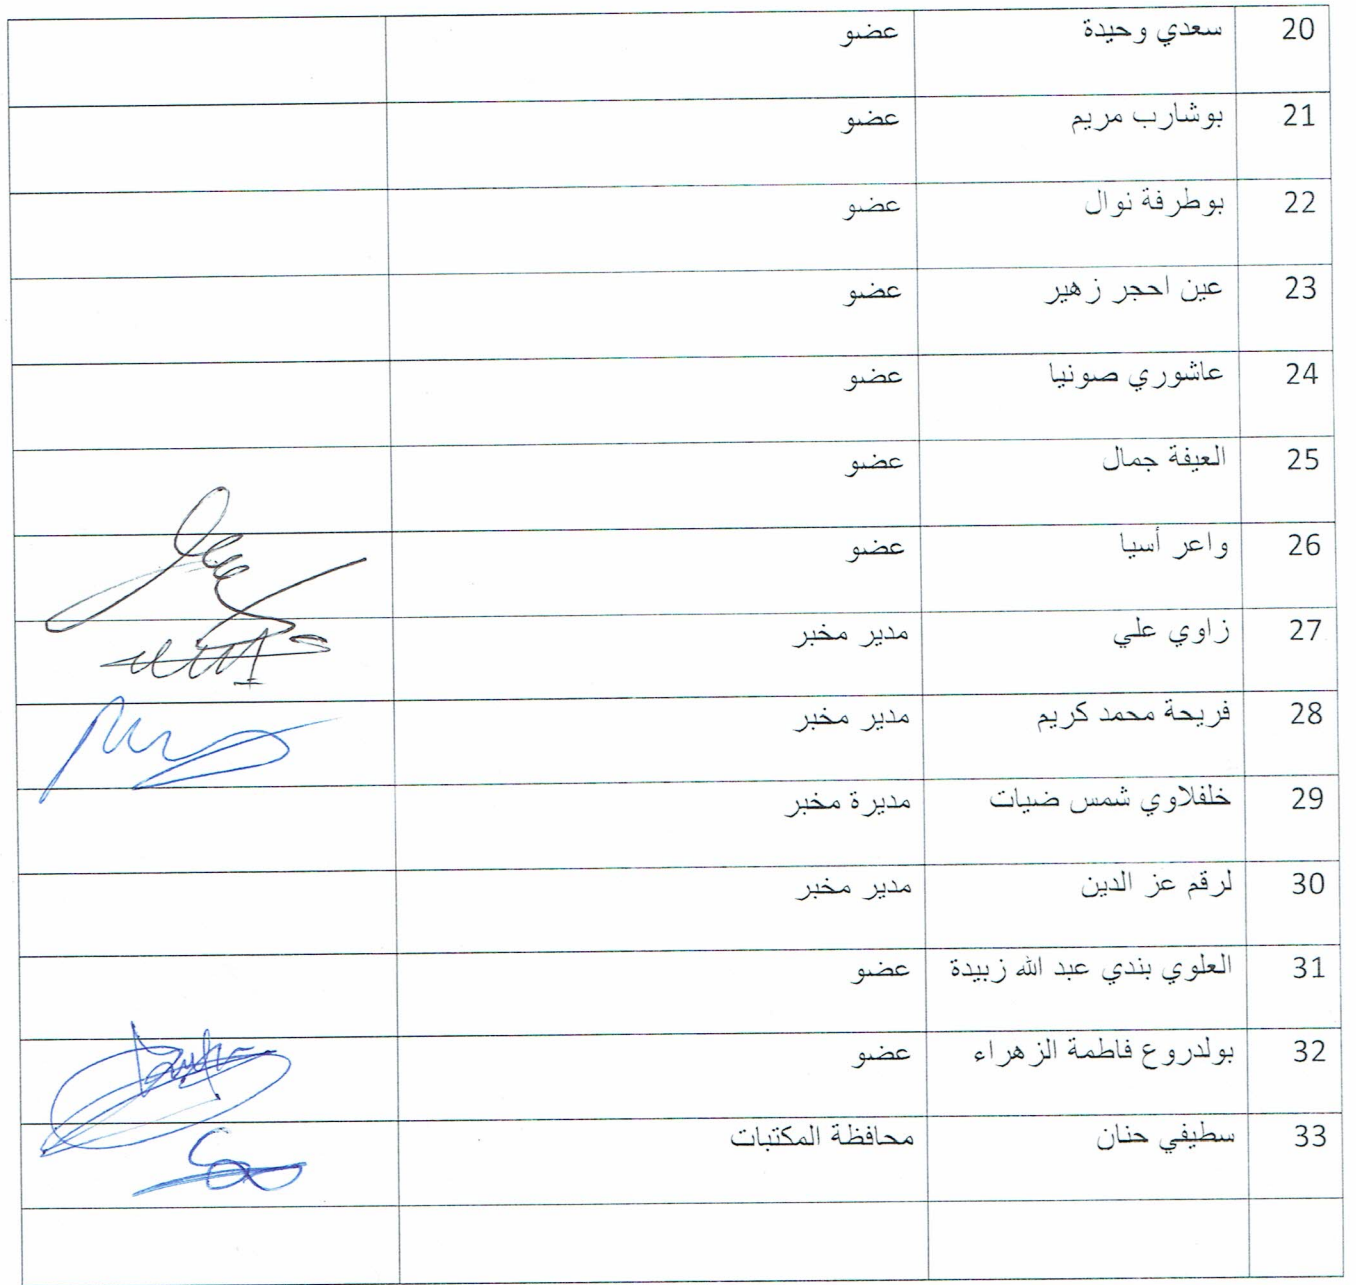 20 سعدي وحيدة عضو
21 بوشارب مريم عضو
22 بوطرفة نوال عضو
23 عين احجر زهير عضو
24 عاشوري صونيا عضو
25 العيفة جمال عضو
26 واعر أسيا عضو
27 زاوي علي مدير مخبر
28 فريحة محمد كريم مدير مخبر
29 خلفلاوي شمس ضيات مديرة مخبر
30 لرقم عز الدين مدير مخبر
31 العلوي بندي عبد الله زبيدة عضو
32 بولدروع فاطمة الزهراء عضو
33 سطيفي حنان محافظة المكتبات